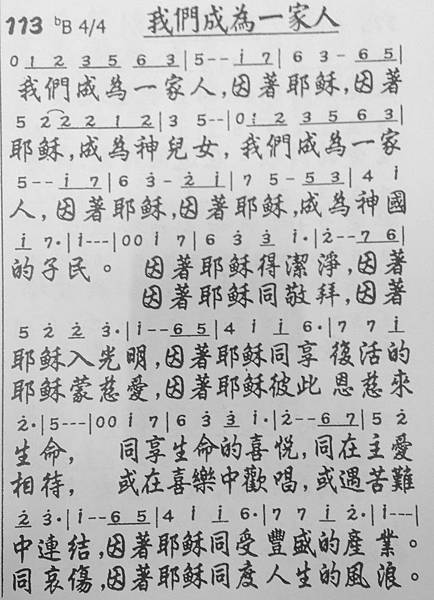 113 ᵇB 4/4 我們成為一家人
0 1 2 3 5 6 3 | 5 - - i 7 | 6 3 - 6 5 |
我們成為一家人,因著耶穌,因著
5 2 2 2 1 2 | 3 5 - - | 0 1 2 3 5 6 3 |
耶穌,成為神兒女,我們成為一家
5 - - i 7 | 6 3 - 2̇ i | 7 5 - 5 3 | 4 i
人,因著耶穌,因著耶穌,成為神國
i 7 · | i - - - | 0 0 i 7 | 6 3̇ 3̇ i · | 2̇ - - 7 6 |
的子民。 因著耶穌得潔淨,因著
因著耶穌同敬拜,因著
5 2̇ 2̇ 3̇ · | i - - 6 5 | 4 i i 6 · | 7 7 i
耶穌入光明,因著耶穌同享復活的
耶穌蒙慈愛,因著耶穌彼此恩慈來
2̇ · | 5 - - - | 0 0 i 7 | 6 3̇ 3̇ i · | 2̇ - - 6 7 | 5 2̇
生命, 同享生命的喜悅,同在主愛
相待, 或在喜樂中歡唱,或遇苦難
2̇ 3̇ · | i - - 6 5 | 4 i i 6 · | 7 7 i 2̇ · | i - - - |
中連結,因著耶穌同受豐盛的產業。
同哀傷,因著耶穌同度人生的風浪。